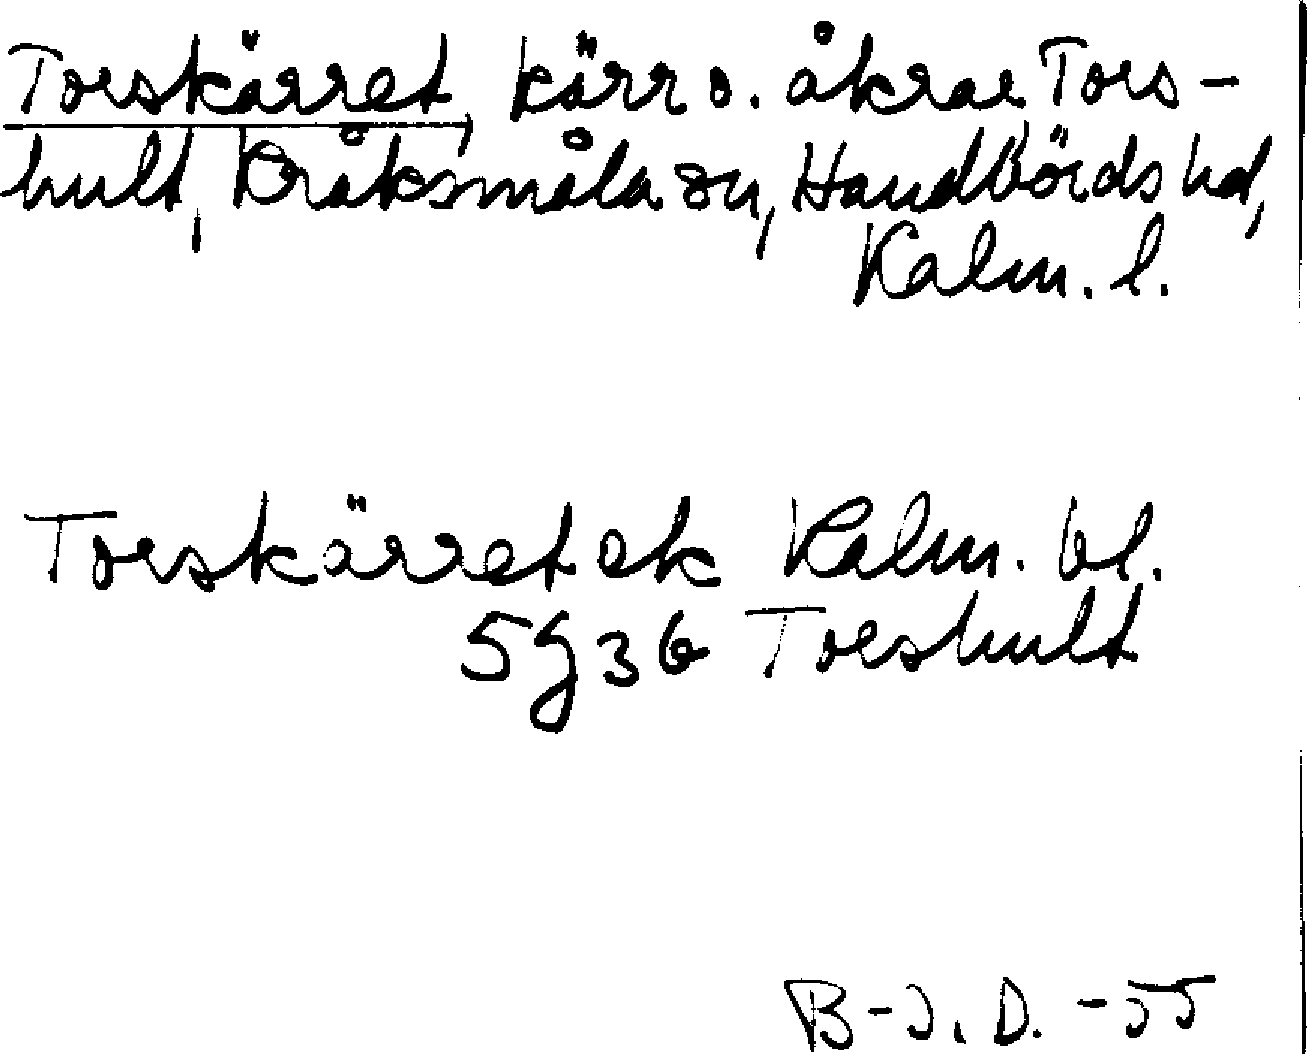 Torskärret, kärr o. åkrar Tors-
hult, Kråksmåla sn, Handbörds hd,
Kalm. l.
Torskärret ek Kalm. bl.
5g36 Torshult
B-J. D. -55